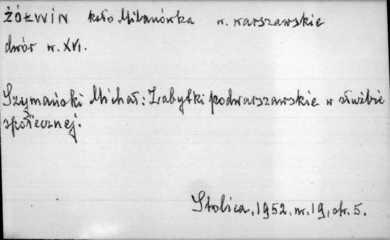 ŻÓŁWIN koło Milanówka w. warszawskie
dwór w. XVI.
Szymański Michał: Zabytki podwarszawskie w służbie
społecznej.
Stolica, 1952. nr. 19, str. 5.